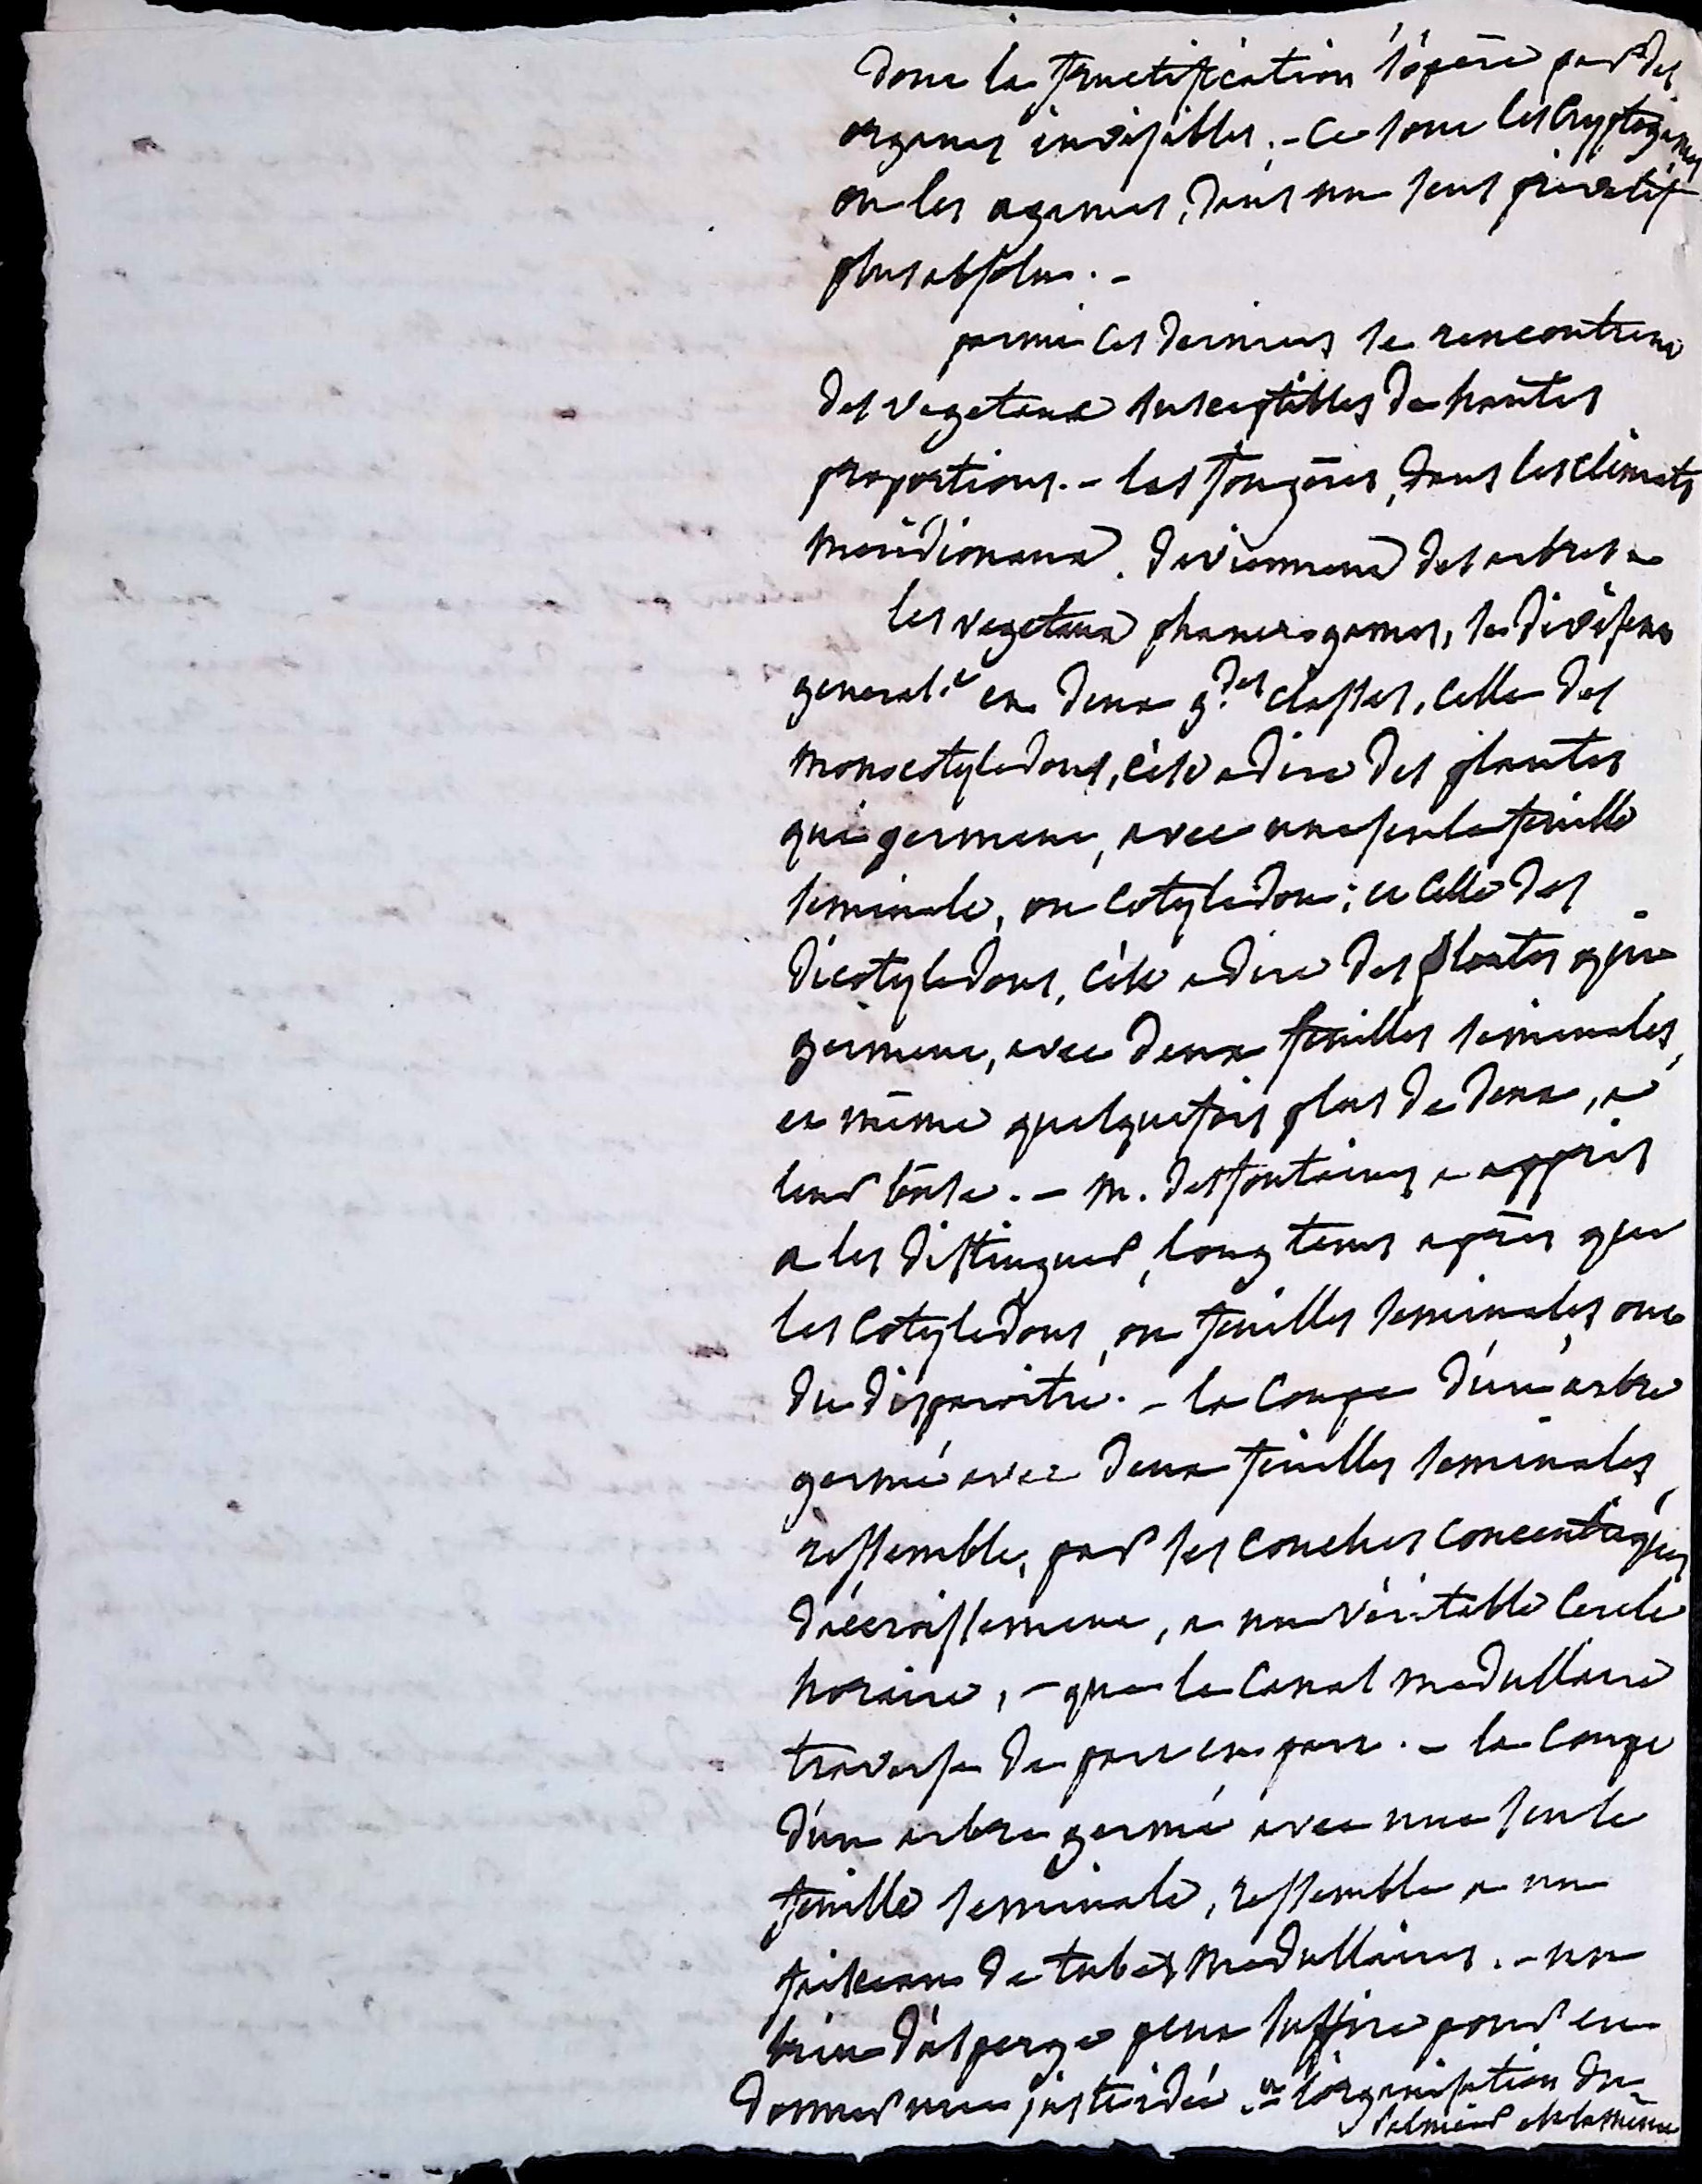 dont la fructification s'opère par des
organes invisibles. - ce sont les cryptogames
ou les agames, dans un sens privatif
plus absolu. -
parmi ces derniers se rencontrent
des vegetaux susceptibles de hautes
proportions. - les fougères, dans les climats
meridionaux, deviennent des arbres -
les vegetaux phanerogames, se divisent
general.t en deux g.des classes, celle des
monocotyledons, c'est a dire des plantes
qui germent, avec une seule feuille
seminale, ou cotyledon; et celle des
dicotyledons, c'est a dire des plantes qui
germent, avec deux feuilles seminales,
et même quelquefois plus de deux, a
leur base. - m. desfontaines a appris
a les distinguer, long tems après que
les cotyledons, ou feuilles seminales, ont
du disparoitre. - la coupe d'un arbre
germé avec deux feuilles seminales,
ressemble, par ses couches concentriques
d'accroissement, a un véritable cercle
horaire, - que le canal medullaire
traverse de part en part. - la coupe
d'un arbre germé avec une seule
feuille seminale, ressemble a un
faisceau de tubes medullaires. - un
brin d'asperge peut suffire pour en
donner une juste idée. - l'organisation du
palmier est la même